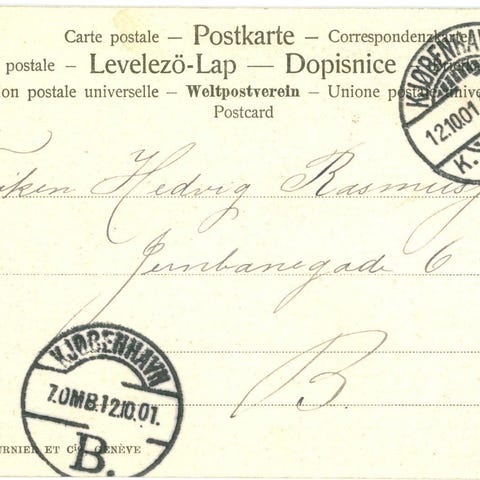 Carte postale – Postkarte – Correspondenzkarte
postale – Levelezö-Lap – Dopisnice –
on postale universelle – Weltpostverein – Unione postale
Postcard
KJØBENHAVN
12.10.01
K.
Hedvig
Jernbanegade 6
B.
KJØBENHAVN
7.OMB.12.10.01.
B.
URNIER ET Cie, GENÈVE